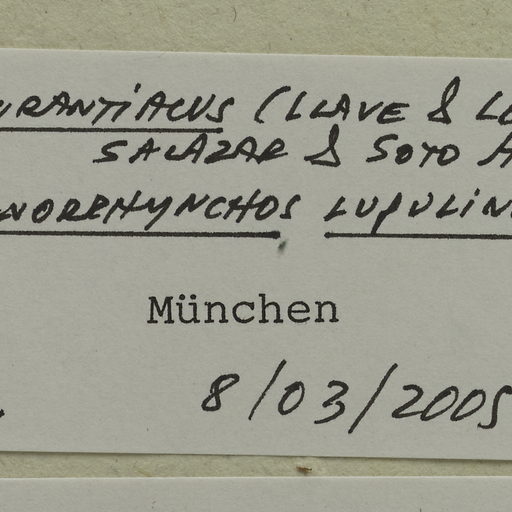 URANTIACUS (LLAVE & LE
SALAZAR & SOTO A
NORRHYNCHOS LUPULIN
München
8/03/2005